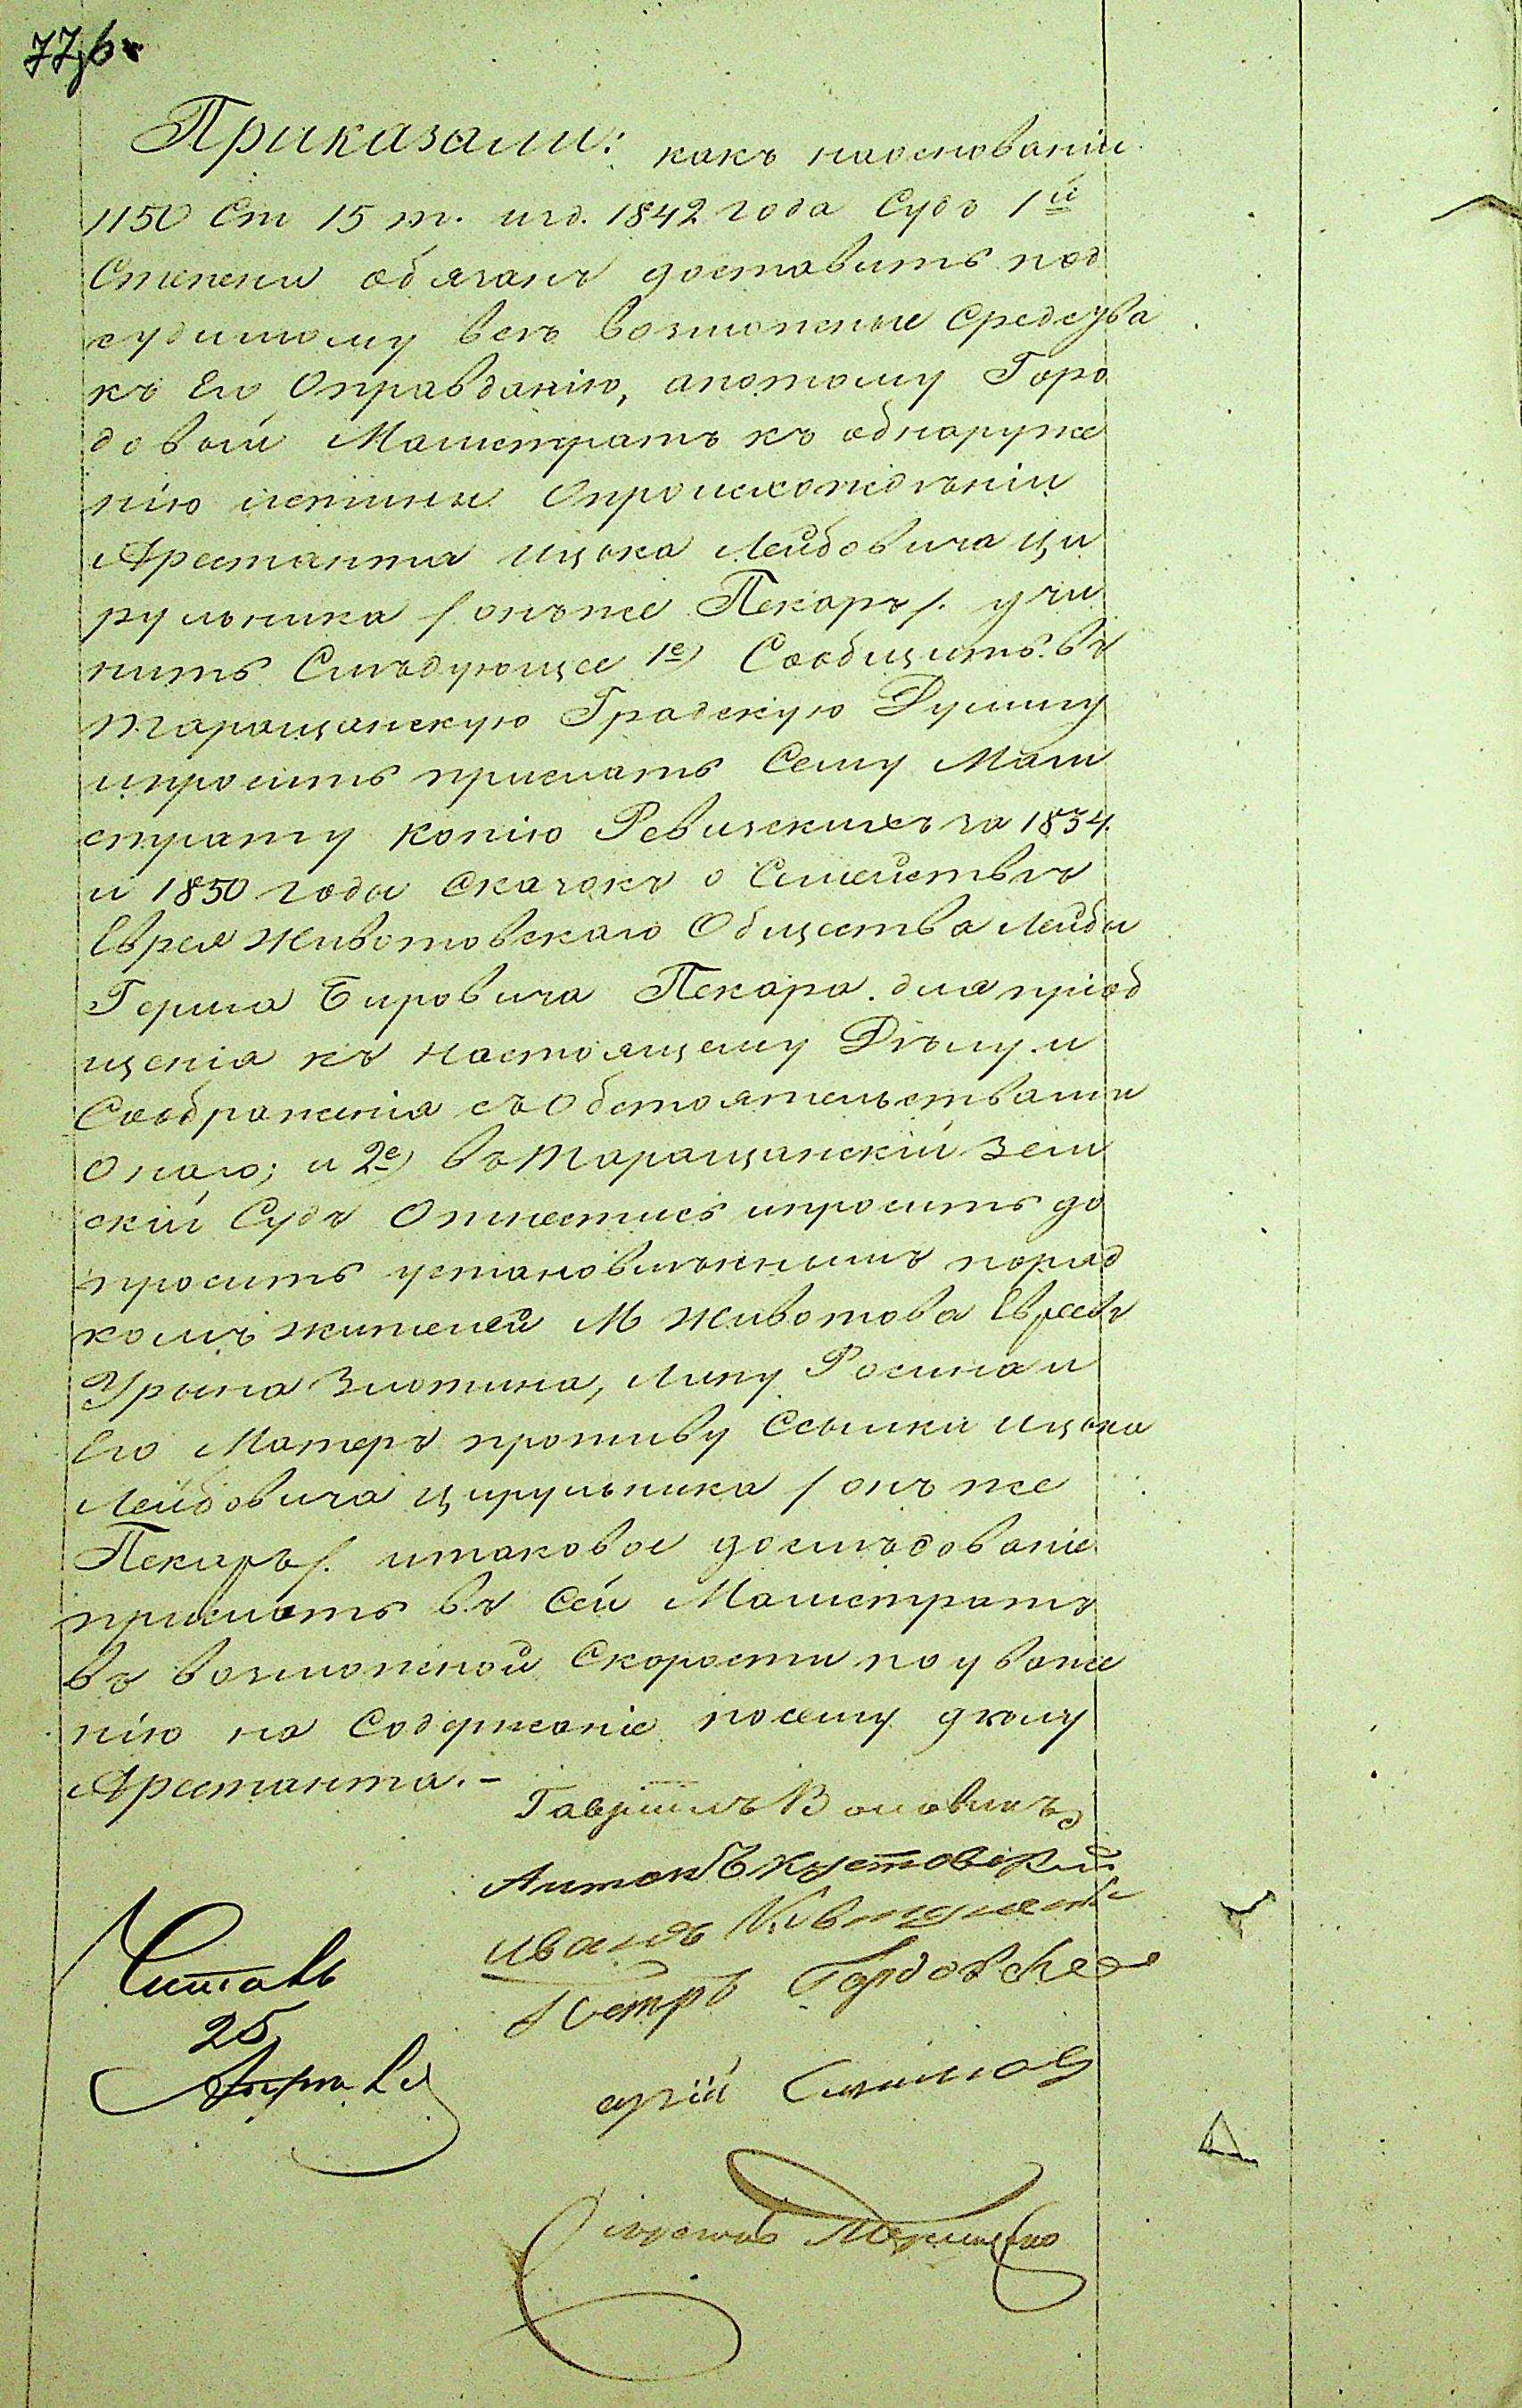 Приказали: какъ наоснованіи
1150 Ст 15 т. изд. 1842 года Судъ 1й
Степени обязанъ доставить под
судимому всѣ возможные Средства
къ Его Оправданію, апотому Горо
довой Магистратъ къ обнаруже
нію истины Опроисхожденіи
Арестанта Ицька Лейбовича Ци
рульника /онъ же Пекарь/. учи
нить Слѣдующее 1е) Сообщить въ
Таращанскую Градскую Думму
ипросить прислать Сему Маги
страту копію Ревизскихъ за 1834.
и 1850 годы Сказокъ о Семействѣ
Еврея Животовскаго Общества Лейбы
Герша Бировича Пекара. для пріоб
щенія къ настоящему Дѣлу и
Соображенія съ Обстоятельствами
Онаго; и 2е) въ Таращанскій Зем
скій Судъ Отнестись ипросить до
просить установленнымъ поряд
комъ жителей М Животова Евреевъ
Урына Злотина, Липу Росина и
Его Матерь противу Ссылки Ицька
Лейбовича Цирульника /онъ же
Пекарь/. итаковое дослѣдованіе
прислать въ Сей Магистратъ
въ возможной Скорости по уваже
нію на Содержаніе посему дѣлу
Арестанта.-
Гавріилъ
Антонъ
Иванъ
Петръ
Читалъ
25